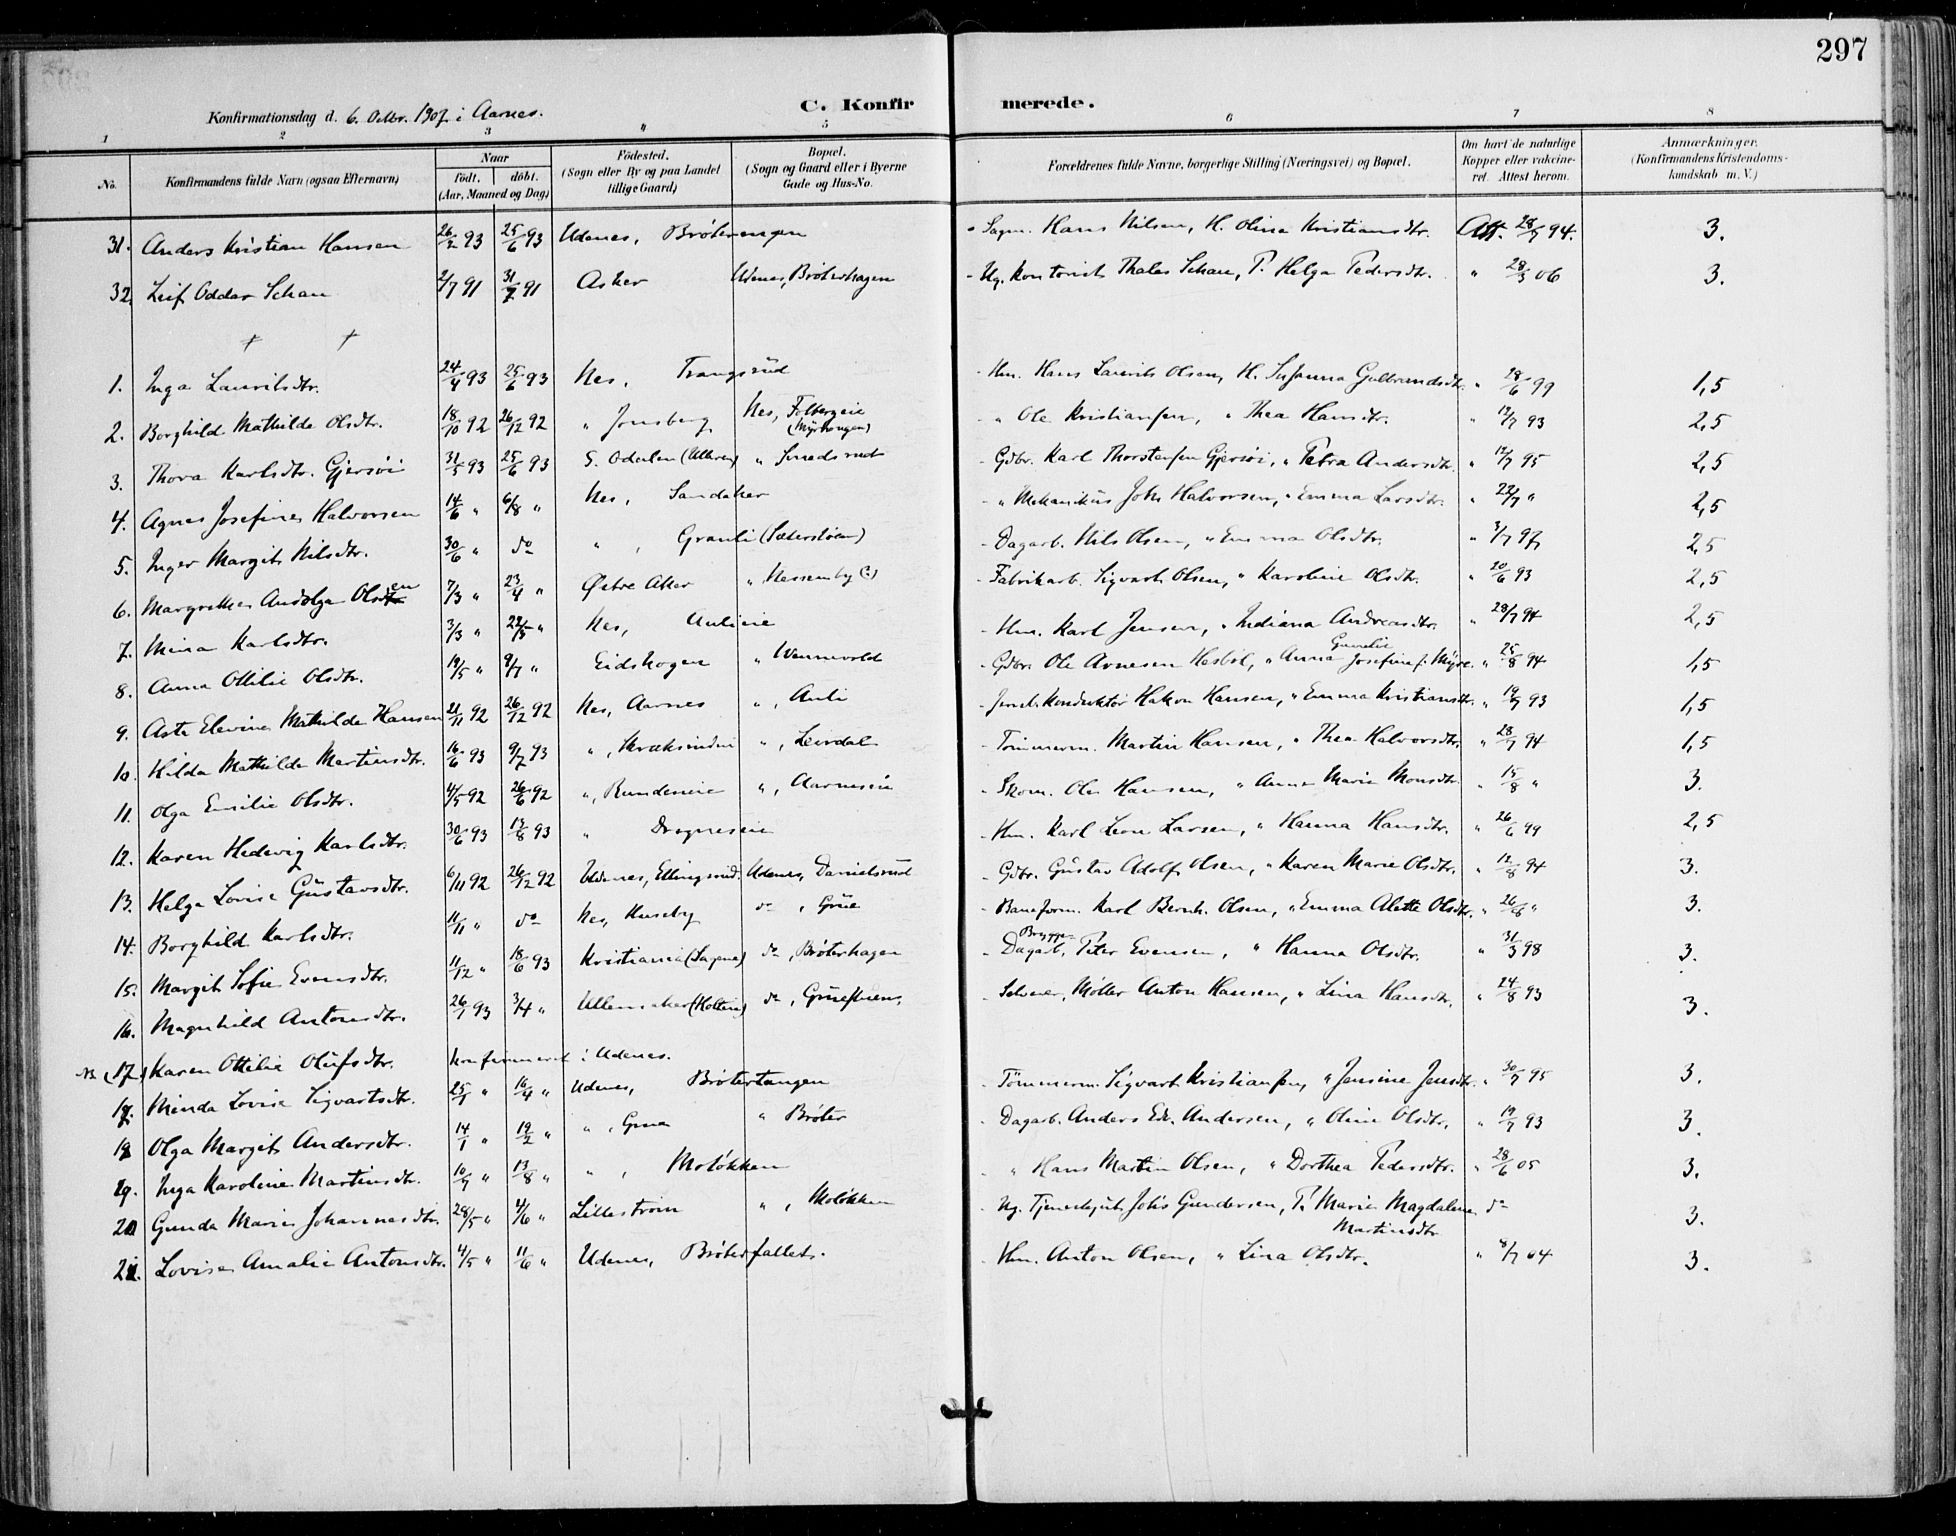 297
Konfirmationsdag d. 6. Oktbr. 1907 i Aarnes.
C. Konfirmerede.
1 2 3 " 5 6 7 8
No. Konfirmandens fulde Navn (ogsaa Efternavn) Naar födt. döbt. (Aar, Maaned og Dag) Födested. (Sogn eller By og paa Landet tillige Gaard) Bopæl. (Sogn og Gaard eller i Byerne Gade og Hus-No. Forældrenes fulde Navne, borgerlige Stilling (Næringsvei) og Bopæl. Om havt de naturlige Kopper eller vakcineret. Attest herom. Anmærkninger. (Konfirmandens Kristendomskundskab m. V.)
31. Anders Kristian Hansen 26/2 93 25/6 93 Udenes, Brøterengen Sagm. Hans Nilsen, H. Olina Kristiansdtr. Att. 28/7 94. 3.
32. Leif Oddar Schau 2/7 91 31/7 91 Asker Udenes, Brøterhagen Ug. kontorist Thales Schau, P. Helga Pedersdtr. " 28/3 06 3.
1. Inga Lauritsdtr. 24/4 93 25/6 93 Nes, Trangsrud Hm. Hans Laurits Olsen, H. Susanna Gulbrandsdtr. " 18/6 99 1,5
2. Borghild Mathilde Olsdtr. 18/10 92 26/12 92 " Jonsberg Nes, Folbergeie (Myrhaugen) " Ole Kristiansen, " Thea Hansdtr. " 12/7 93 2,5
3. Thora Karlsdtr. Gjersøi 31/5 93 25/6 93 S. Odalen (Ulleren) " Smedsrud Gdbr. Karl Thorstensen Gjersøi, " Petra Andersdtr. " 12/7 95 2,5
4. Agnes Josefine Halvorsen 14/6 " 6/8 " Nes, Sandaker " Mekanikus Johs Halvorsen, " Emma Larsdtr. " 22/7 " 2,5
5. Inger Margit Nilsdtr. 30/6 " do " , Granli (Sæterstøen) Dagarb. Nils Olsen, " Emma Olsdtr. " 3/7 97 2,5
6. Margrethe Andolga Olsen 7/3 " 23/4 " Østre Aker " Hessenby (?) Fabrikarb. Sigvart Olsen, " Karoline Olsdtr. " 20/6 93 2,5
7. Mina Karlsdtr. 3/3 " 22/5 " Nes, Aulieie Hm. Karl Jensen, " Indiana Andreasdtr. " 28/7 94 2,5
8. Anna Otilie Olsdtr. 19/5 " 9/7 " Eidskogen " Wennevold Gdbr. Ole Arnesen Hesbøl, " Anna Gunelie Josefine f. Myre. " 25/8 94 1,5
9. Asta Elevine Mathilde Hansen 21/11 92 26/12 92 Nes, Aarnes " , Auli Jernb. konduktør Hakon Hansen, " Emma Kristiansdtr. " 19/7 93 1,5
10. Hilda Mathilde Martinsdtr. 16/6 93 9/7 93 " , " , Leirdal Tømmerm. Martin Hansen, " Thea Halvorsdtr. " 28/7 94 1,5
11. Olga Emilie Olsdtr. 4/5 92 26/6 92 " , Rundeneie " , Aarneseie Skom. Ole Hansen, " Anne Marie Monsdtr. " 15/8 " 3.
12. Karen Hedevig Karlsdtr. 30/6 93 13/8 93 " Dragneseie Hm. Karl Leon Larsen, " Hanna Hansdtr. " 26/6 99 2,5
13. Helga Lovise Gustavsdtr. 6/11 92 26/12 92 Udenes, Ellingsrud. Udenes, Danielsrud Gdbr. Gustav Adolf Olsen, " Karen Marie Olsdtr. " 12/8 94 3.
14. Borghild Karlsdtr. 11/11 " do Nes, Huseby do , Grüe Baneform. Karl Bernh. Olsen, " Emma Alette Olsdtr. " 26/8 " 3.
15. Margit Sofie Evensdtr. 11/12 " 18/6 93 Kristiania (Sagene) do , Brøterhagen Brygge Dagarb. Peter Evensen, " Hanna Olsdtr. " 31/3 98 3.
16. Magnhild Antonsdtr. 26/1 93 3/4 " Ullensaker do , Selveier, Møller Anton Hansen, " Lina Hansdtr. " 24/8 93 3.
N. (17.) Karen Otilie Olufsdtr. konfirmeret i Udenes.
17. Minda Lovise Sigvartsdtr. 25/1 " 16/4 " Udenes, Brøtertangen Tømmerm. Sigvart Kristiansen, " Jensine Jensdtr. " 30/7 95 3.
18 Olga Margit Andersdtr. 14/1 " 19/2 " " , Grue " Brøter Dagarb. Anders Edv. Andersen, " Oline Olsdtr. " 19/7 93 3.
19. Inga Karoline Martinsdtr. 10/7 " 13/8 " " , Moløkken " Hans Martin Olsen, " Dorthea Pedersdtr. " 28/6 05 3.
20 Gunda Marie Johannesdtr. 28/5 " 4/6 " Lillestrøm " , Moløkken Ug. Johs Gundersen, P. Marie Magdalene Martinsdtr do 3.
21. Lovise Amalie Antonsdtr. 4/5 " 11/6 " Udenes, Brøterfallet. Hm. Anton Olsen, " Lina Olsdtr. " 8/7 04 3.